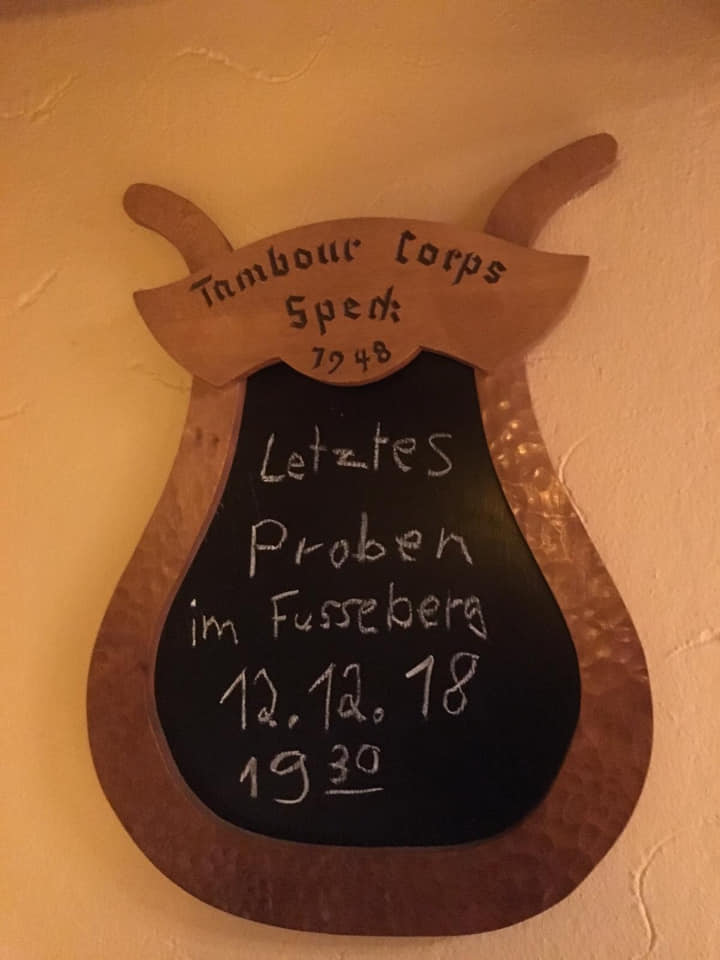 Tambour Corps
Speck
1948
Letztes
Proben
im Fusseberg
12.12.18
19 30